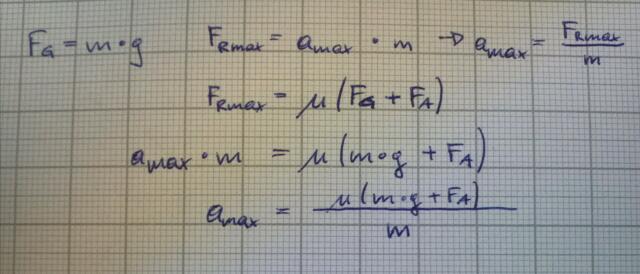 F_G = m·g   F_Rmax = a_max · m → a_max = F_Rmax / m
F_Rmax = μ(F_G + F_A)
a_max · m = μ(m·g + F_A)
a_max = μ(m·g + F_A) / m